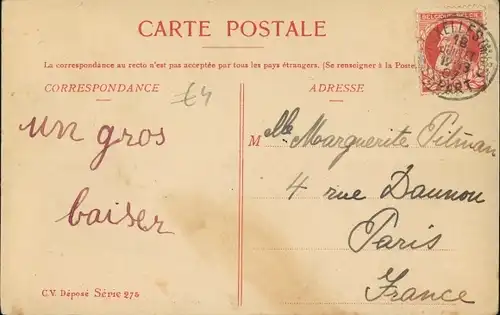 CARTE POSTALE
BELGIQUE-BELGIË
La correspondance au recto n'est pas acceptée par tous les pays étrangers. (Se renseigner à la Poste.
CORRESPONDANCE
€4
ADRESSE
un gros
baiser
Mlle Marguerite Pitman
4 rue Daunou
Paris
France
DÉPART
C.V. Déposé Série 275